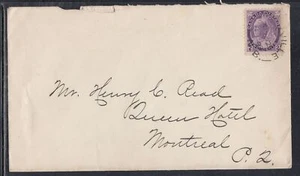 Mr. Henry C. Read
Queen Hotel
Montreal
P. Q.